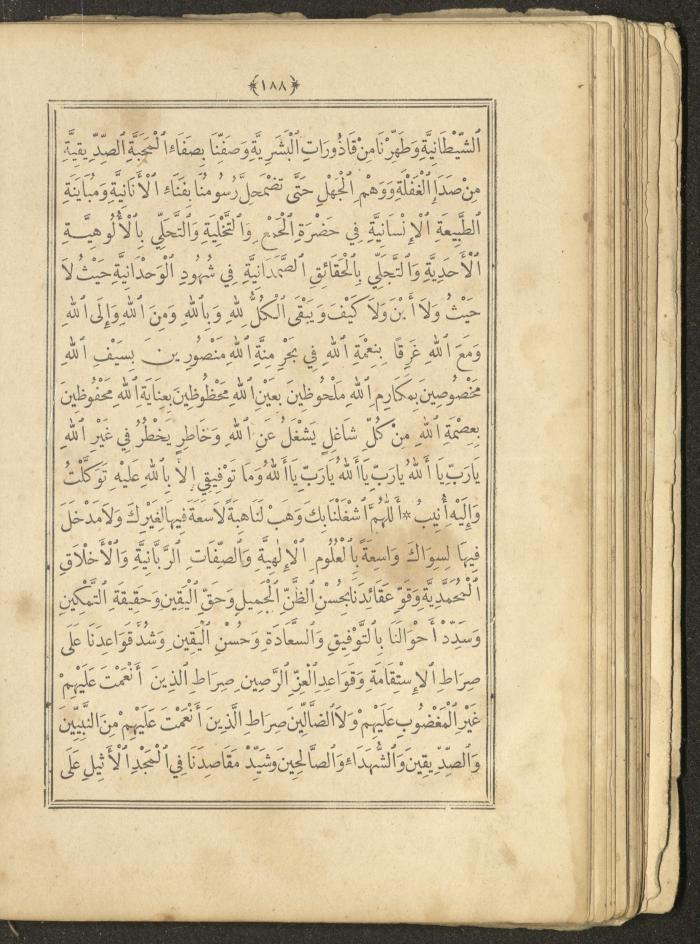 ﴿١٨٨﴾
الشَّيْطَانِيَّةِ وَطَهِّرْنَا مِنْ قَاذُورَاتِ الْبَشَرِيَّةِ وَصَفِّنَا بِصَفَاءِ الْمَحَبَّةِ الصِّدِّيقِيَّةِ
مِنْ صَدَإِ الْغَفْلَةِ وَوَهْمِ الْجَهْلِ حَتَّى تَضْمَحِلَّ رُسُومُنَا بِفَنَاءِ الْأَنَانِيَّةِ وَمُبَايَنَةِ
الطَّبِيعَةِ الْإِنْسَانِيَّةِ فِي حَضْرَةِ الْجَمْعِ وَالتَّخْلِيَةِ وَالتَّحَلِّي بِالْأُلُوهِيَّةِ
الْأَحَدِيَّةِ وَالتَّجَلِّي بِالْحَقَائِقِ الصَّمَدَانِيَّةِ فِي شُهُودِ الْوَحْدَانِيَّةِ حَيْثُ لاَ
حَيْثُ وَلاَ أَيْنَ وَلاَ كَيْفَ وَيَبْقَى الْكُلُّ لِلّٰهِ وَبِاللّٰهِ وَمِنَ اللّٰهِ وَإِلَى اللّٰهِ
وَمَعَ اللّٰهِ غَرَقًا بِنِعْمَةِ اللّٰهِ فِي بَحْرِ مِنَّةِ اللّٰهِ مَنْصُورِينَ بِسَيْفِ اللّٰهِ
مَخْصُوصِينَ بِمَكَارِمِ اللّٰهِ مَلْحُوظِينَ بِعَيْنِ اللّٰهِ مَحْظُوظِينَ بِعِنَايَةِ اللّٰهِ مَحْفُوظِينَ
بِعِصْمَةِ اللّٰهِ مِنْ كُلِّ شَاغِلٍ يَشْغَلُ عَنِ اللّٰهِ وَخَاطِرٍ يَخْطُرُ فِي غَيْرِ اللّٰهِ
يَارَبِّ يَا أَللّٰهُ يَارَبِّ يَاأَللّٰهُ يَارَبِّ يَاأَللّٰهُ وَمَا تَوْفِيقِي إِلاَّ بِاللّٰهِ عَلَيْهِ تَوَكَّلْتُ
وَإِلَيْهِ أُنِيبُ * أَللّٰهُمَّ اشْغَلْنَا بِكَ وَهَبْ لَنَا هِبَةً لاَ سَعَةَ فِيهَا لِغَيْرِكَ وَلاَ مَدْخَلَ
فِيهَا لِسِوَاكَ وَاسِعَةً بِالْعُلُومِ الْإِلٰهِيَّةِ وَالصِّفَاتِ الرَّبَّانِيَّةِ وَالْأَخْلَاقِ
الْمُحَمَّدِيَّةِ وَقَوِّ عَقَائِدَنَا بِحُسْنِ الظَّنِّ الْجَمِيلِ وَحَقِّ الْيَقِينِ وَحَقِيقَةِ التَّمْكِينِ
وَسَدِّدْ أَحْوَالَنَا بِالتَّوْفِيقِ وَالسَّعَادَةِ وَحُسْنِ الْيَقِينِ وَشُدَّ قَوَاعِدَنَا عَلَى
صِرَاطِ الْإِسْتِقَامَةِ وَقَوَاعِدِ الْعِزِّ الرَّصِينِ صِرَاطِ الَّذِينَ أَنْعَمْتَ عَلَيْهِمْ
غَيْرِ الْمَغْضُوبِ عَلَيْهِمْ وَلاَ الضَّالِّينَ صِرَاطِ الَّذِينَ أَنْعَمْتَ عَلَيْهِمْ مِنَ النَّبِيِّينَ
وَالصِّدِّيقِينَ وَالشُّهَدَاءِ وَالصَّالِحِينَ وَشَيِّدْ مَقَاصِدَنَا فِي الْمَجْدِ الْأَثِيلِ عَلَى